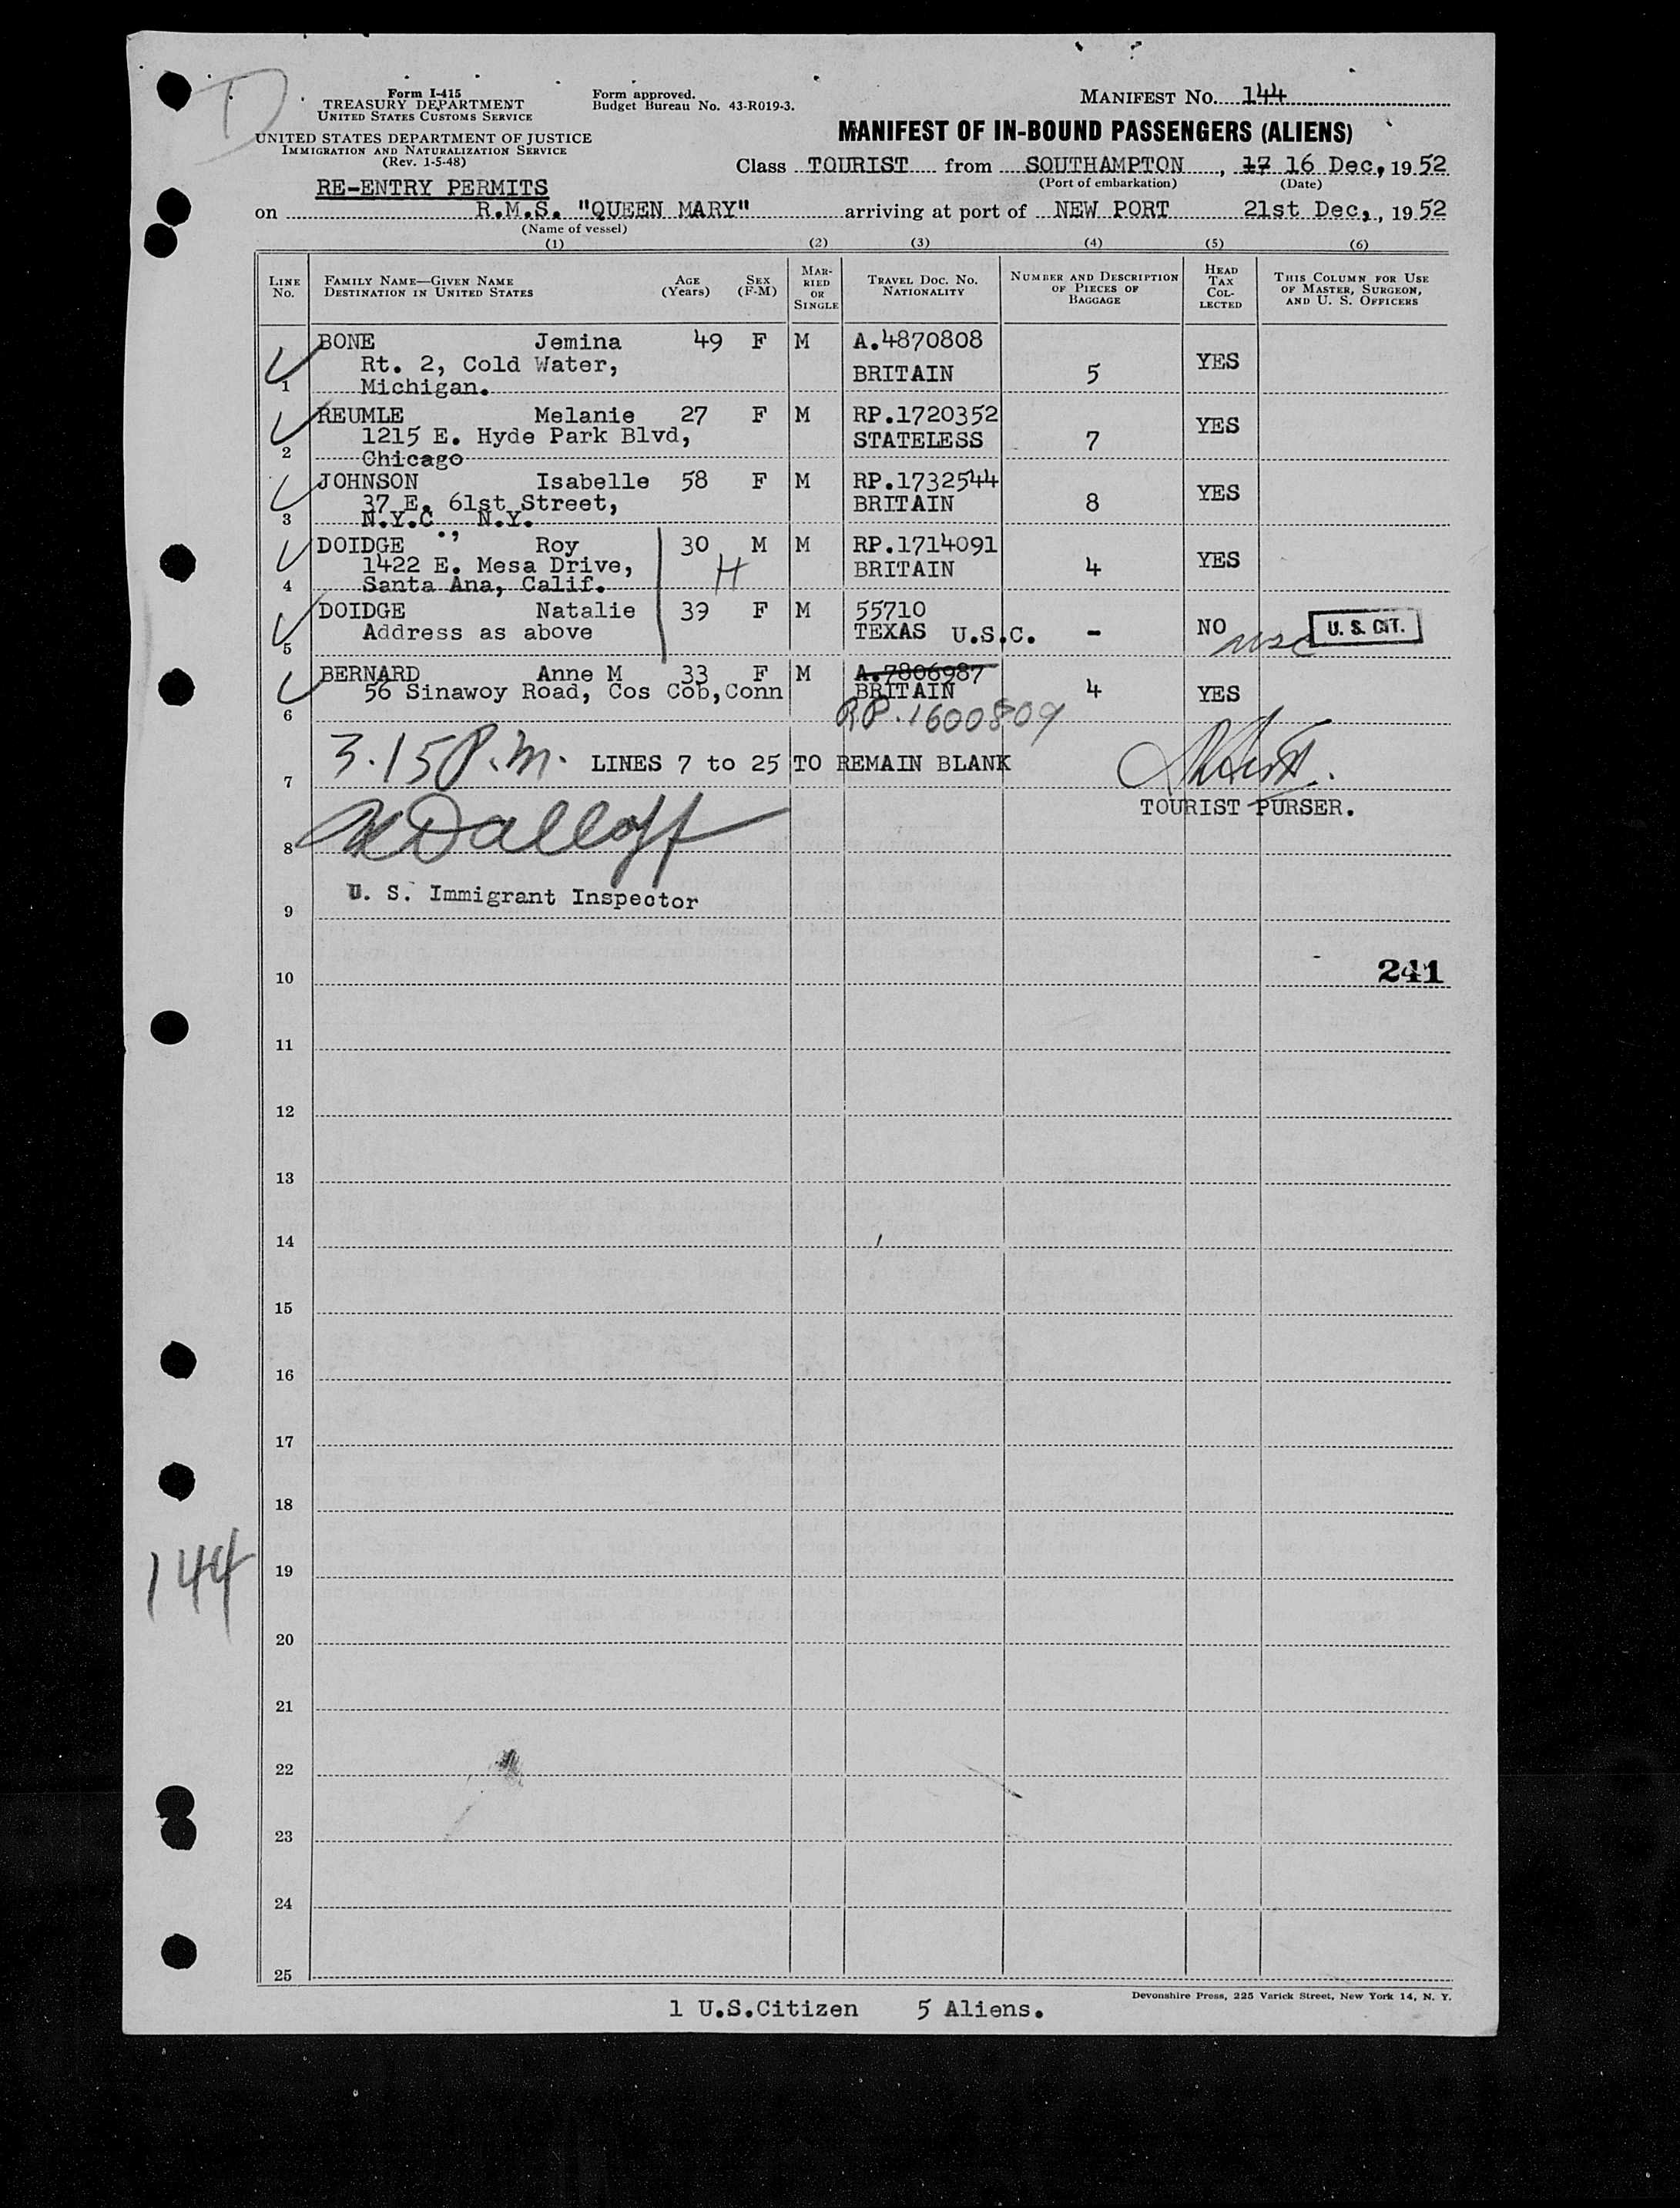 D
Form I-415
TREASURY DEPARTMENT
UNITED STATES CUSTOMS SERVICE
UNITED STATES DEPARTMENT OF JUSTICE
IMMIGRATION AND NATURALIZATION SERVICE
(Rev. 1-5-48)
Form approved.
Budget Bureau No. 43-R019-3.
MANIFEST NO. 144
MANIFEST OF IN-BOUND PASSENGERS (ALIENS)
Class TOURIST from SOUTHAMPTON, 17 16 Dec, 1952
(Port of embarkation) (Date)
RE-ENTRY PERMITS
on R.M.S. "QUEEN MARY" arriving at port of NEW PORT 21st Dec, , 1952
(Name of vessel)
(1) (2) (3) (4) (5) (6)
LINE No. FAMILY NAME—GIVEN NAME DESTINATION IN UNITED STATES AGE (Years) SEX (F-M) MARRIED OR SINGLE TRAVEL DOC. NO. NATIONALITY NUMBER AND DESCRIPTION OF PIECES OF BAGGAGE HEAD TAX COLLECTED THIS COLUMN FOR USE OF MASTER, SURGEON, AND U. S. OFFICERS
BONE Jemina 49 F M A.4870808
Rt. 2, Cold Water, BRITAIN 5 YES
1 Michigan.
REUMLE Melanie 27 F M RP.1720352
1215 E. Hyde Park Blvd, STATELESS 7 YES
2 Chicago
JOHNSON Isabelle 58 F M RP.1732544
37 E. 61st Street, BRITAIN 8 YES
3 N.Y.C., N.Y.
DOIDGE Roy 30 M M RP.1714091
1422 E. Mesa Drive, H BRITAIN 4 YES
4 Santa Ana, Calif.
DOIDGE Natalie 39 F M 55710
Address as above TEXAS U.S.C. - NO usc U. S. CIT.
5
BERNARD Anne M 33 F M A.7806987
56 Sinawoy Road, Cos Cob, Conn BRITAIN 4 YES
6 RP.1600809
3.15 P.m. LINES 7 to 25 TO REMAIN BLANK
7
TOURIST PURSER.
8
U. S. Immigrant Inspector
9
241
10
11
12
13
14
15
16
17
18
144
19
20
21
22
23
24
25
Devonshire Press, 225 Varick Street, New York 14, N. Y.
1 U.S.Citizen 5 Aliens.